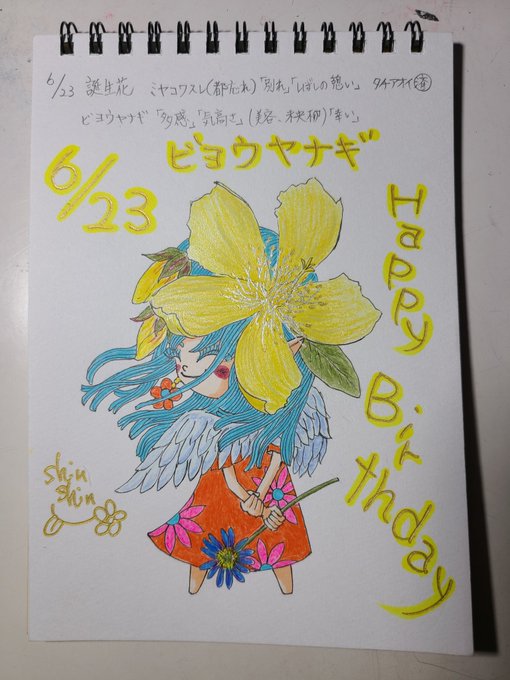 6/23 誕生花 ミヤコワスレ(都忘れ)「別れ」「しばしの憩い」 タチアオイ済
ビヨウヤナギ 「多感」「気高さ」(美容、未央柳)「幸い」
ビヨウヤナギ
6/23
Happy Birthday
shin
shin